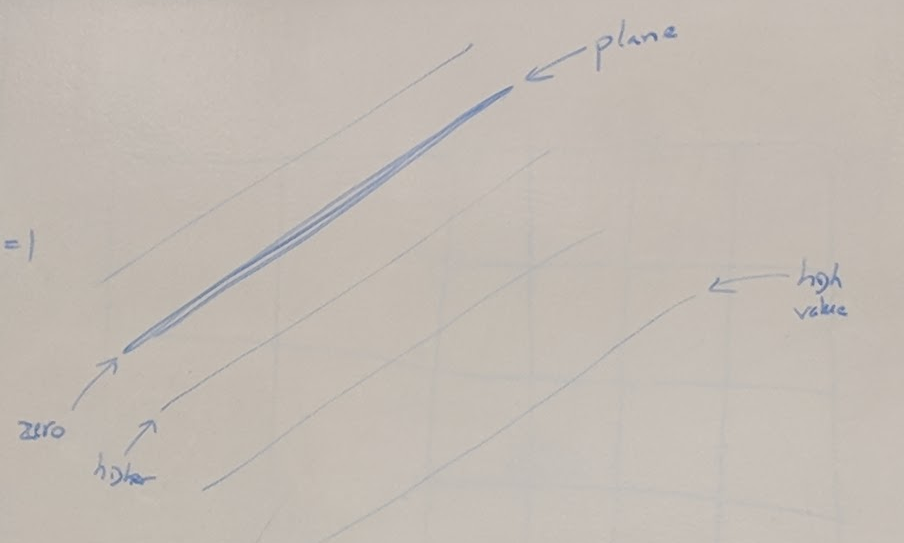 plane
=1
high
value
zero
higher